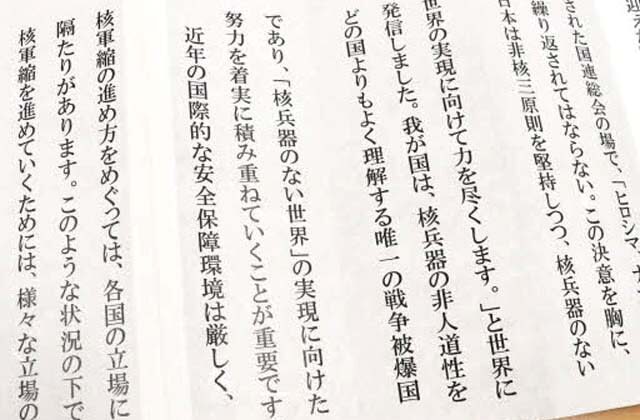 された国連総会の場で、「ヒロシマ、ナ
繰り返されてはならない。この決意を胸に、
日本は非核三原則を堅持しつつ、核兵器のない
世界の実現に向けて力を尽くします。」と世界に
発信しました。我が国は、核兵器の非人道性を
どの国よりもよく理解する唯一の戦争被爆国
であり、「核兵器のない世界」の実現に向けた
努力を着実に積み重ねていくことが重要です
近年の国際的な安全保障環境は厳しく、
核軍縮の進め方をめぐっては、各国の立場に
隔たりがあります。このような状況の下で
核軍縮を進めていくためには、様々な立場の